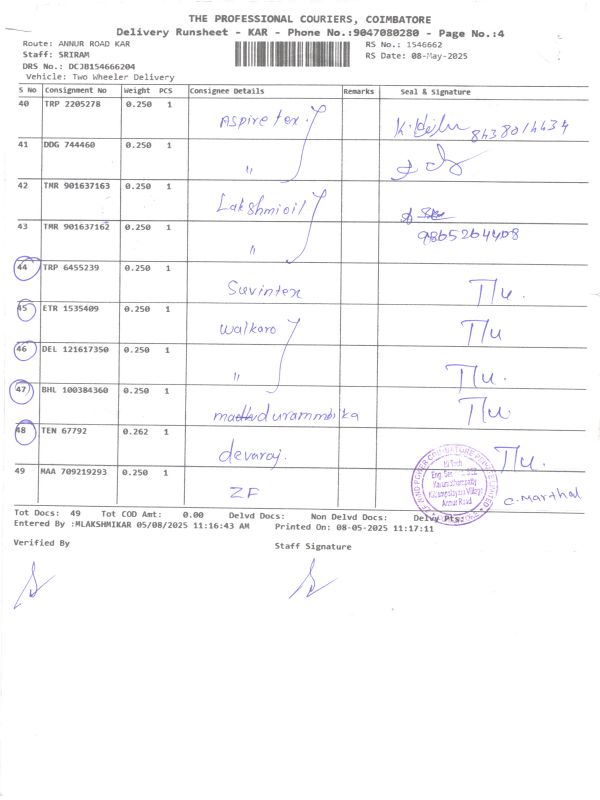 THE PROFESSIONAL COURIERS, COIMBATORE
Delivery Runsheet - KAR - Phone No.:9047080280 - Page No.:4
Route: ANNUR ROAD KAR
RS No.: 1546662
Staff: SRIRAM
RS Date: 08-May-2025
DRS No.: DCJB154666204
Vehicle: Two Wheeler Delivery
S No Consignment No Weight PCS Consignee Details Remarks Seal & Signature
40 TRP 2205278 0.250 1 Aspire tex 8438016634
41 DDG 744460 0.250 1 "
42 TMR 901637163 0.250 1 Lakshmi oil
43 TMR 901637162 0.250 1 " 9865264408
44 TRP 6455239 0.250 1 Suvintex
45 ETR 1535409 0.250 1 Walkaro
46 DEL 121617350 0.250 1 "
47 BHL 100384360 0.250 1
48 TEN 67792 0.262 1 devaraj.
49 MAA 709219293 0.250 1 ZF C. Marthal
Annur Road
Tot Docs: 49 Tot COD Amt: 0.00 Delvd Docs: Non Delvd Docs: Delvy Pts:
Entered By :MLAKSHMIKAR 05/08/2025 11:16:43 AM Printed On: 08-05-2025 11:17:11
Verified By
Staff Signature